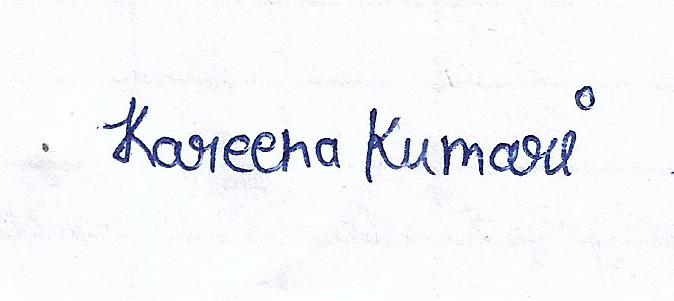 Kareena Kumari